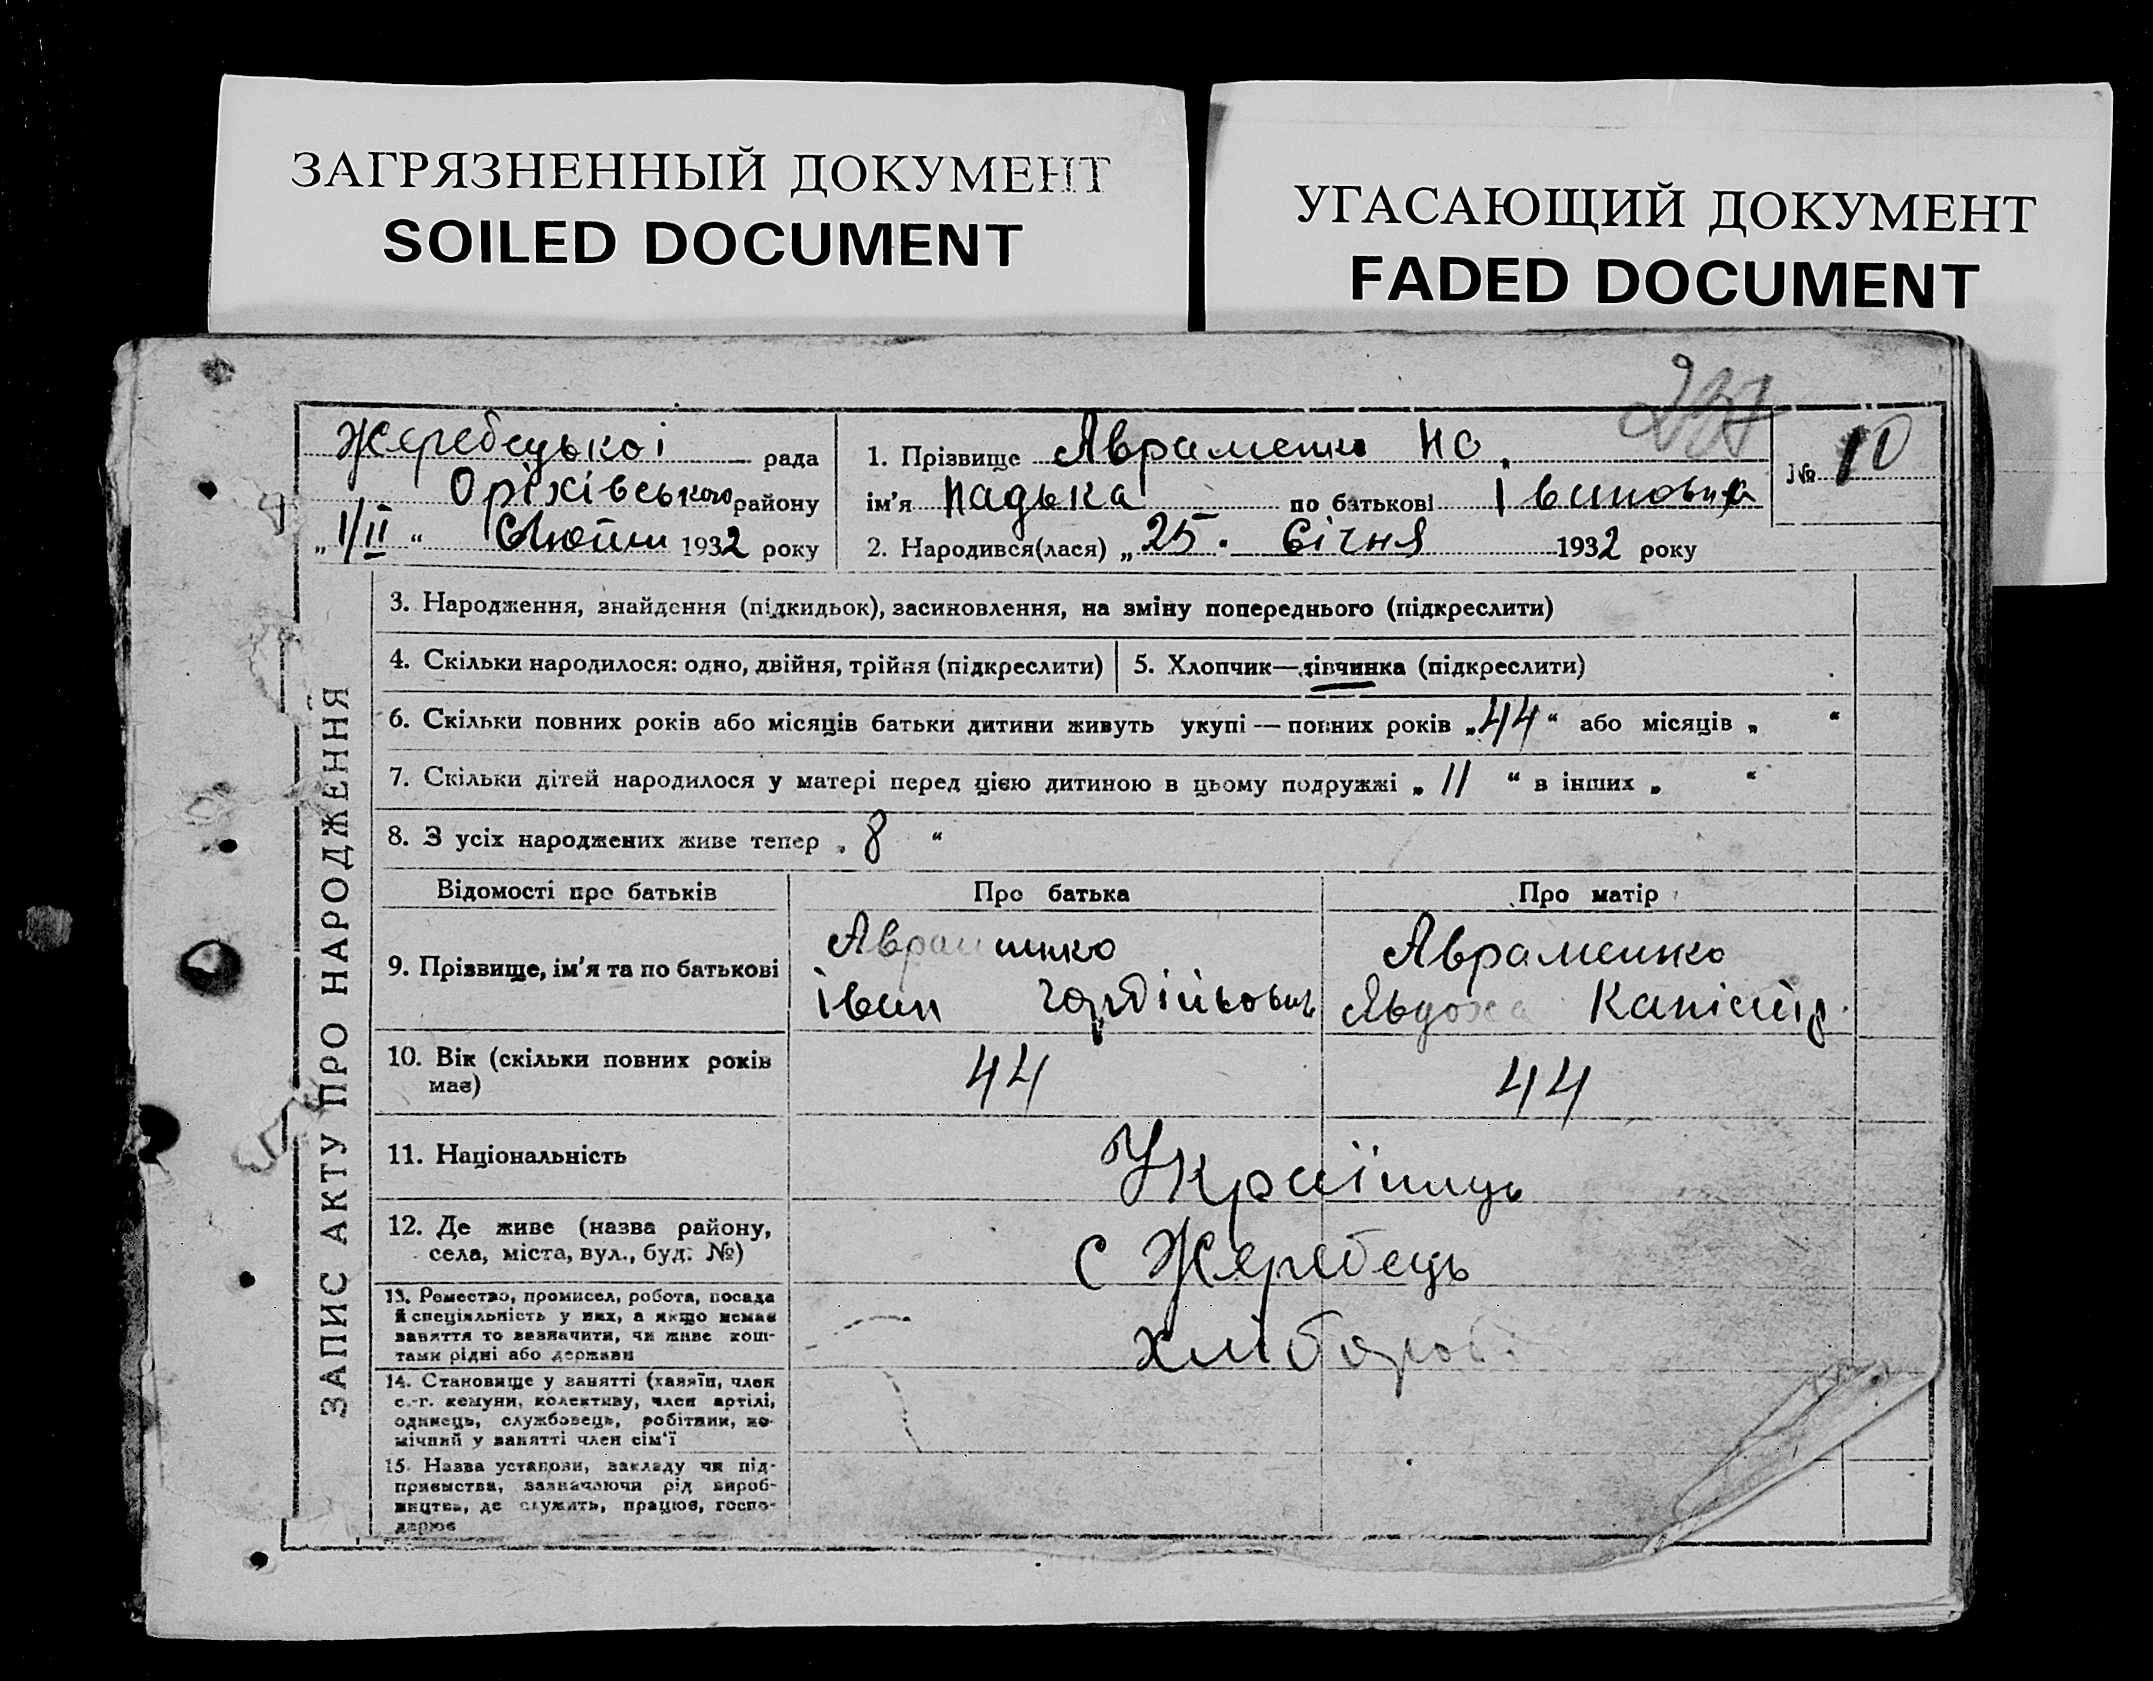 ЗАГРЯЗНЕННЫЙ ДОКУМЕНТ
SOILED DOCUMENT
УГАСАЮЩИЙ ДОКУМЕНТ
FADED DOCUMENT
237
Жеребецької рада
Оріхівського району
„ 1/II “ Лютий 1932 року
1. Прізвище Авраменко НО.
ім'я Надька по батькові Івановна
№ 10
2. Народився(лася) „ 25. Січня 1932 року
ЗАПИС АКТУ ПРО НАРОДЖЕННЯ
3. Народження, знайдення (підкидьок), засиновлення, на зміну попереднього (підкреслити)
4. Скільки народилося: одно, двійня, трійня (підкреслити)
5. Хлопчик—дівчинка (підкреслити)
6. Скільки повних років або місяців батьки дитини живуть укупі — повних років „ 44 “ або місяців „ “
7. Скільки дітей народилося у матері перед цією дитиною в цьому подружжі „ 11 “ в інших „ “
8. З усіх народжених живе тепер „ 8 “
Відомості про батьків
Про батька
Про матір
9. Прізвище, ім'я та по батькові
Авраменко
Іван Гордійович
Авраменко
Явдоха Капістр.
10. Вік (скільки повних років
має)
44
44
11. Національність
Українць
12. Де живе (назва району,
села, міста, вул., буд. №)
с Жеребець
13. Ремество, промисел, робота, посада
й спеціяльність у них, а якщо немає
заняття то зазначити, чи живе кош-
тами рідні або держави
хлібороб
14. Становище у занятті (хазяїн, член
с.-г. комуни, колективу, член артілі,
одинець, службовець, робітник, по-
мічний у занятті член сім'ї
15. Назва установи, закладу чи під-
приємства, зазначаючи рід вироб-
ництва, де служить, працює, госпо-
дарює